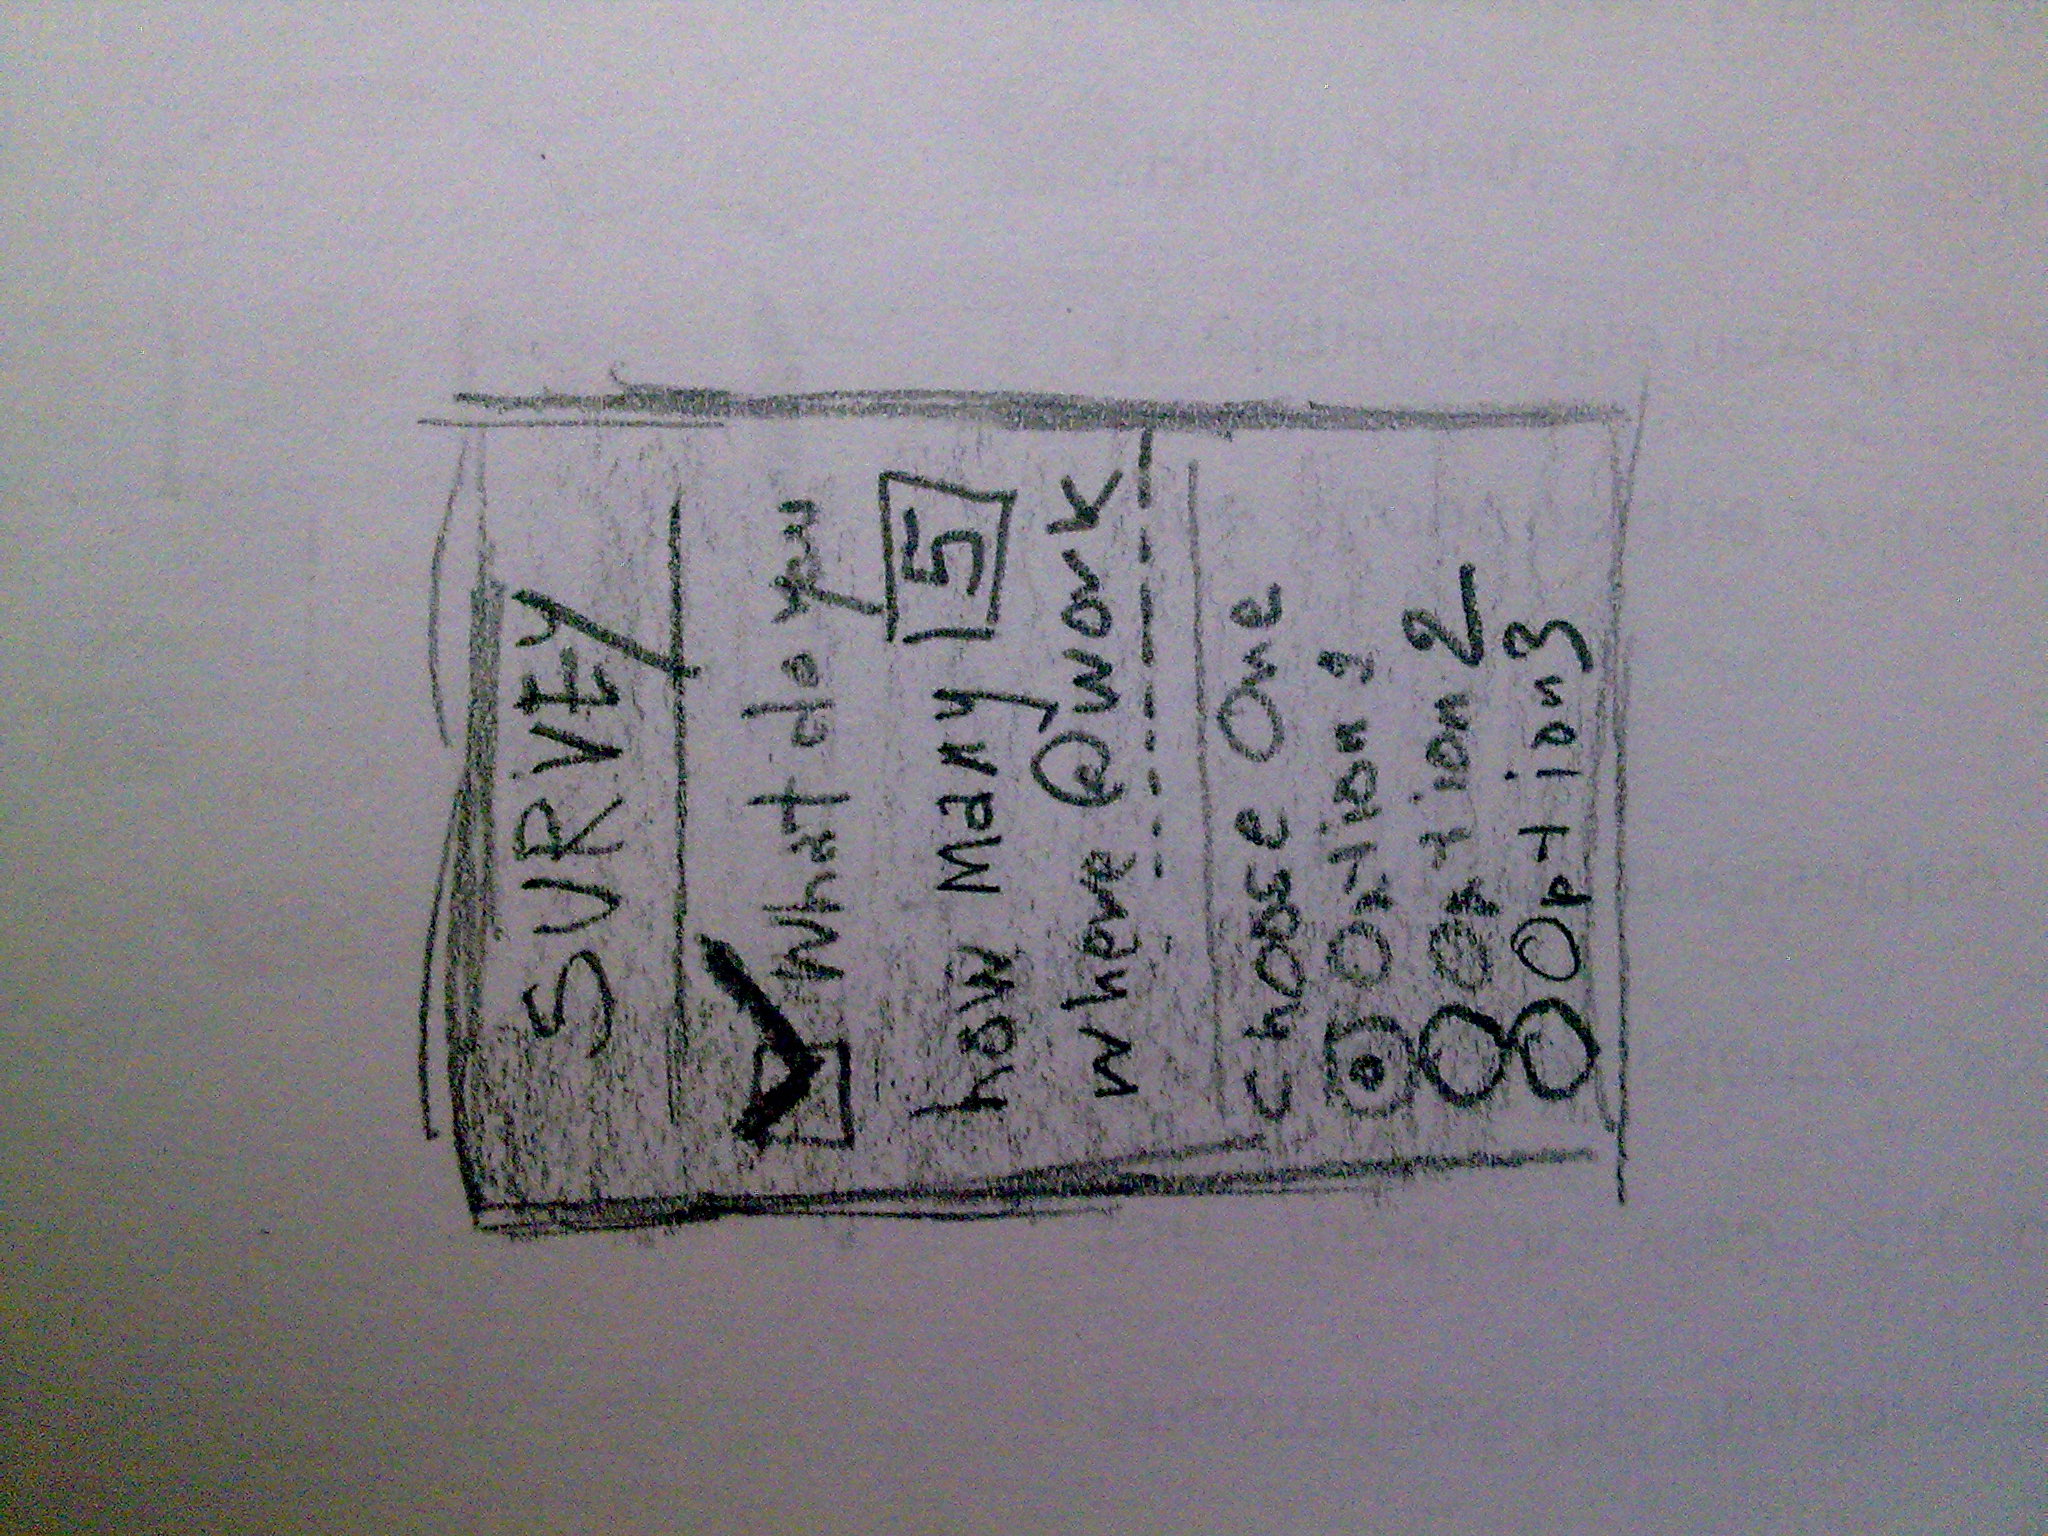 SURVEY
What do you
how many 5
where @work
chose one
Option 1
Option 2
Option 3